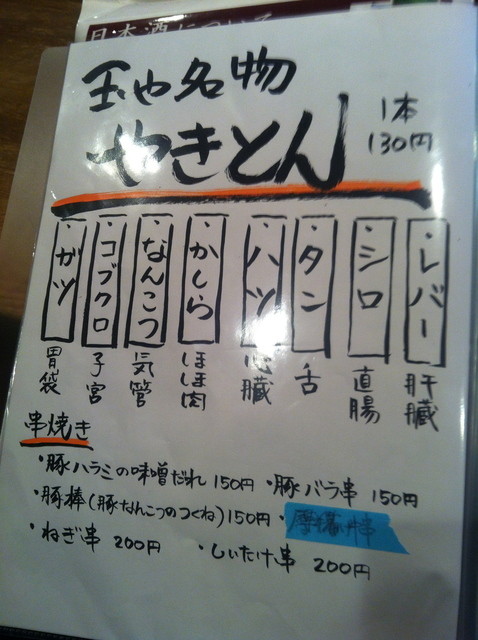 日本酒について
玉や名物
やきとん
1本
130円
レバー
肝臓
シロ
直腸
タン
舌
ハツ
心臓
かしら
ほほ肉
なんこつ
気管
コブクロ
子宮
ガツ
胃袋
串焼き
・豚ハラミの味噌だれ 150円 ・豚バラ串 150円
・豚棒(豚なんこつのつくね) 150円 ・
・ねぎ串 200円 ・しいたけ串 200円